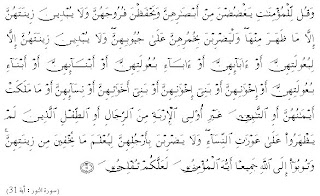 وَقُل لِّلْمُؤْمِنَٰتِ يَغْضُضْنَ مِنْ أَبْصَٰرِهِنَّ وَيَحْفَظْنَ فُرُوجَهُنَّ وَلَا يُبْدِينَ زِينَتَهُنَّ
إِلَّا مَا ظَهَرَ مِنْهَا ۖ وَلْيَضْرِبْنَ بِخُمُرِهِنَّ عَلَىٰ جُيُوبِهِنَّ ۖ وَلَا يُبْدِينَ زِينَتَهُنَّ إِلَّا
لِبُعُولَتِهِنَّ أَوْ ءَابَآئِهِنَّ أَوْ ءَابَآءِ بُعُولَتِهِنَّ أَوْ أَبْنَآئِهِنَّ أَوْ أَبْنَآءِ
بُعُولَتِهِنَّ أَوْ إِخْوَٰنِهِنَّ أَوْ بَنِىٓ إِخْوَٰنِهِنَّ أَوْ بَنِىٓ أَخَوَٰتِهِنَّ أَوْ نِسَآئِهِنَّ أَوْ مَا مَلَكَتْ
أَيْمَٰنُهُنَّ أَوِ ٱلتَّٰبِعِينَ غَيْرِ أُو۟لِى ٱلْإِرْبَةِ مِنَ ٱلرِّجَالِ أَوِ ٱلطِّفْلِ ٱلَّذِينَ لَمْ
يَظْهَرُوا۟ عَلَىٰ عَوْرَٰتِ ٱلنِّسَآءِ ۖ وَلَا يَضْرِبْنَ بِأَرْجُلِهِنَّ لِيُعْلَمَ مَا يُخْفِينَ مِن زِينَتِهِنَّ ۚ
وَتُوبُوٓا۟ إِلَى ٱللَّهِ جَمِيعًا أَيُّهَ ٱلْمُؤْمِنُونَ لَعَلَّكُمْ تُفْلِحُونَ ۝٣١
(سورة النور : آية 31)